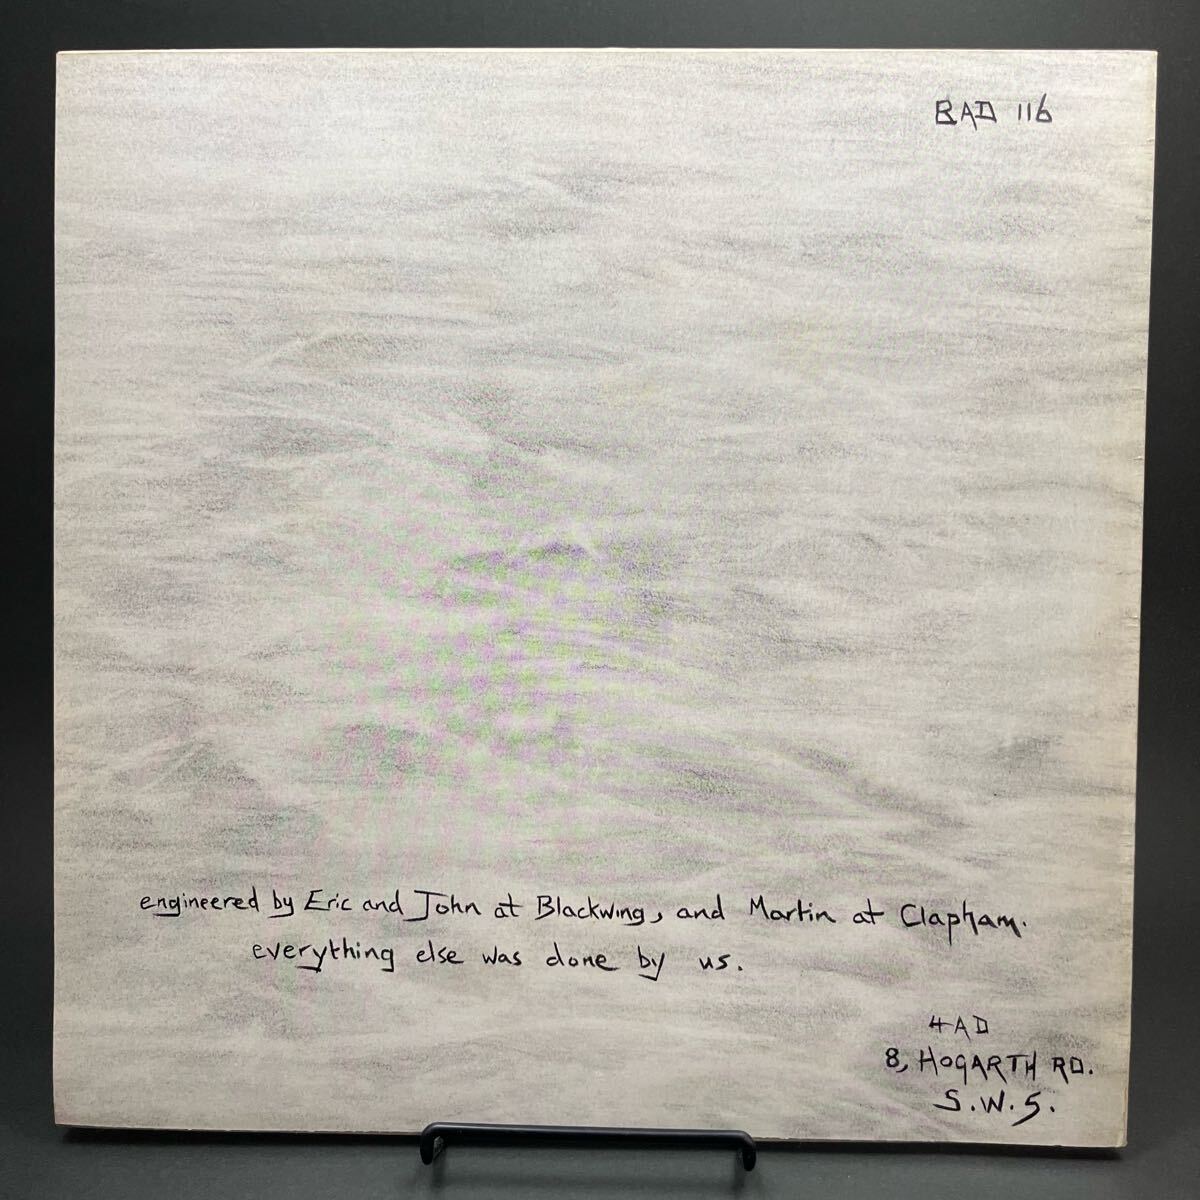 BAD 116
engineered by Eric and John at Blackwing, and Martin at Clapham.
everything else was done by us.
4AD
8, HOGARTH RD.
S.W.5.